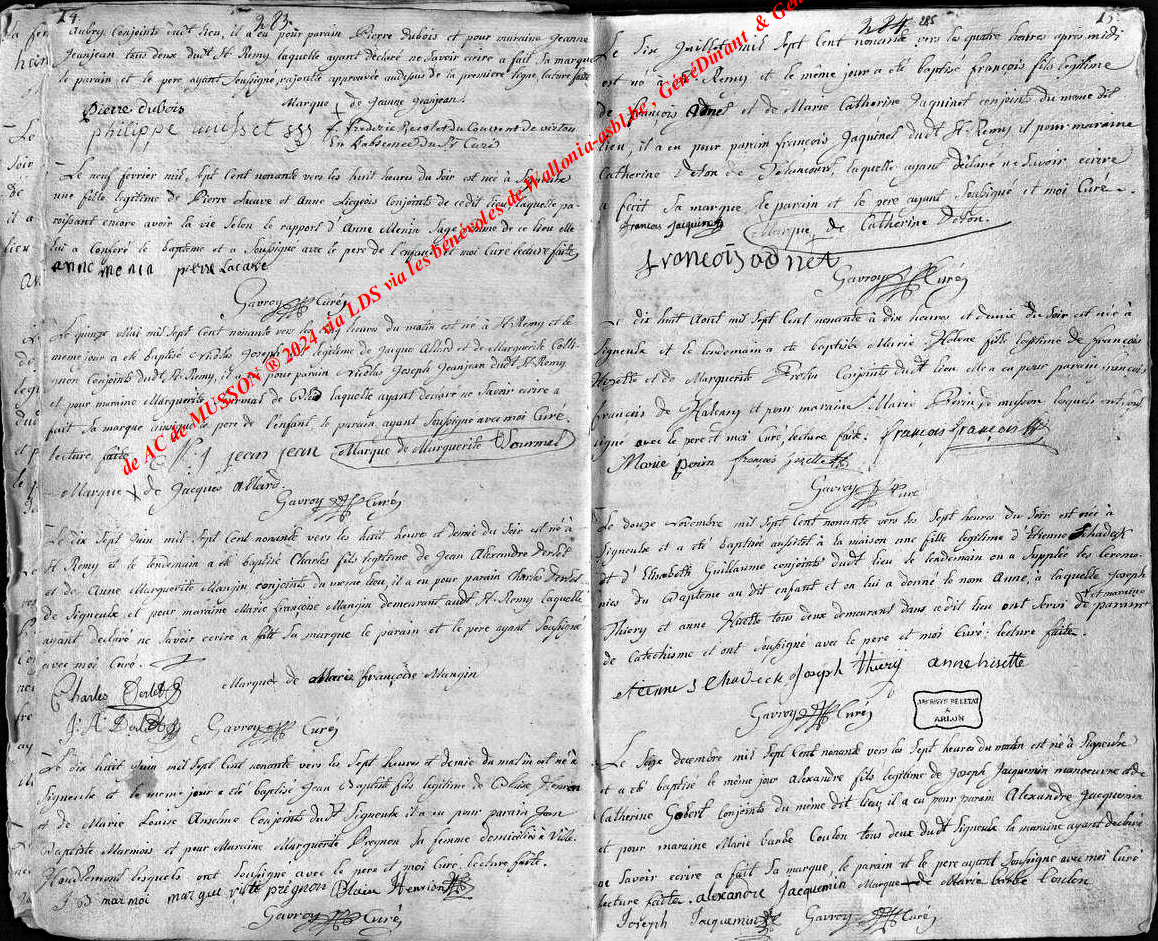 14. 283.
Aubry Conjoints dudt lieu, il a eu pour parain Pierre dubois et pour maraine Jeanne
Jeanjean tous deux dudt St Remy, laquelle ayant déclaré ne Savoir ecrire a fait Sa marque
le parain et le pere ayant Soussigné, rajoutté approuvée audessus de la premiere ligne, lecture faite
Pierre dubois Marque de Jeanne Jeanjean.
philippe
f. Frederic Recolet du Couvent de virton
En l'absence du Sr Curé
Le neuf février mil Sept Cent nonante vers les huit heures du Soir est née à Signeulx
une fille legitime de Pierre Lacave et Anne Liegeois Conjoints de cedit lieu, laquelle pa-
roissant encore avoir la vie Selon le rapport d'Anne Menin Sage femme de ce lieu elle
lui a Conféré le baptême et a Soussigné avec le pere de l'enfant et moi Curé lecture faite
anne menin pierre Lacave
Gavroy Curé
Le quinze Mai mil Sept Cent nonante vers les heures du matin est né à St Remy et le
meme jour a eté baptisé Nicolas Joseph fils legitime de Jacque Allard et de Marguerite Colli-
gnon Conjoints dudt St Remy, il a eu pour parain Nicolas Joseph Jeanjean dudt St Remy
et pour maraine Marguerite laquelle ayant déclaré ne Savoir ecrire a
fait Sa marque ainsi que le pere de l'enfant le parain ayant Soussigné avec moi Curé
lecture faite. jean jean Marque de Marguerite
Marque X de Jacques allard.
Gavroy Curé
Le dix Sept Juin mil Sept Cent nonante vers les huit heure et demie du Soir est né à
St Remy et le lendemain a eté baptisé Charles fils legitime de Jean Alexandre Derlet
et de Anne Marguerite Mangin conjoints du meme lieu, il a eu pour parain Charles Derlet
de Signeulx et pour maraine Marie françoise Mangin demeurant audt St Remy laquelle
ayant declaré ne Savoir ecrire a fait Sa marque le parain et le pere ayant Soussigné
avec moi Curé.
Charles Derlet Marque de Marie françoise Mangin
J. A. Derlet Gavroy Curé
Le dix huit Juin mil Sept Cent nonante vers les Sept heures et demie du matin est né à
Signeulx et le meme jour a eté baptisé Jean Baptiste fils legitime de Blaise Henrion
et de Marie Louise Anselme Conjoints dudt Signeulx il a eu pour parain Jean
Baptiste Marmois et pour Maraine Marguerite Prignon Sa femme domiciliés à Ville-
Houdlemont lesquels ont Soussigné avec le pere et moi Curé, lecture faite.
marguerite prignon Blaise Henrion
Gavroy Curé
284 285 15.
Le Six Juillet mil Sept Cent nonante vers les quatre heures après midi
est né à St Remy et le même jour a eté baptisé françois fils legitime
de françois adnet et de Marie Catherine Jaquinet conjoints du même dit
lieu, il a eu pour parain françois Jaquinet dudt St Remy et pour maraine
Catherine Deton de laquelle ayant déclaré ne Savoir ecrire
a fait Sa marque le parain et le pere ayant Soussigné et moi Curé.
francois Jacquinet Marque de Catherine Deton.
francois adnet
Gavroy Curé
Le dix huit Aout mil Sept Cent nonante à dix heures et demie du Soir est né à
Signeulx et le lendemain a eté baptisée Marie Helene fille legitime de francois
Hizette et de Marguerite Conjoints dudt lieu elle a eu pour parain françois
françois de Halenzy et pour maraine Marie Perin de musson lesquels ont sous
signé avec le pere et moi Curé, lecture faite. françois françois
Marie perin françois
Gavroy Curé
Le douze Novembre mil Sept Cent nonante vers les Sept heures du Soir est née à
Signeulx et a eté baptisée aussitôt à la maison une fille legitime d'Etienne Schadeck
et d'Elisabeth Guillaume conjoints dudt lieu le lendemain on a Suppléé les ceremo-
nies du Baptême au dit enfant et on lui a donné le nom Anne, à laquelle Joseph
Thiery et anne Hizette tous deux demeurant dans cedit lieu ont servi de parain et maraine
de Catechisme et ont soussigné avec le pere et moi Curé; lecture faite.
etienne Schadeck Joseph Thiery anne hisette
Gavroy Curé
ARCHIVES DE L'ETAT
A
ARLON
Le Seize decembre mil Sept Cent nonante vers les Sept heures du matin est né à Signeulx
et a eté baptisé le même jour alexandre fils legitime de Joseph Jacquemin manoeuvre et de
Catherine Gobert Conjoints du même dit lieu, il a eu pour parain Alexandre Jacquemin
et pour maraine Marie barbe Coulon tous deux dudt Signeulx la maraine ayant declaré
ne Savoir ecrire a fait Sa marque, le parain et le pere ayant Soussigné avec moi Curé
lecture faite. alexandre Jacquemin Marque de Marie barbe Coulon
Joseph Jacquemin Gavroy Curé
de AC de MUSSON ® 2024 via LDS via les bénévoles de Wallonia-asbl.be, GénéDinant &